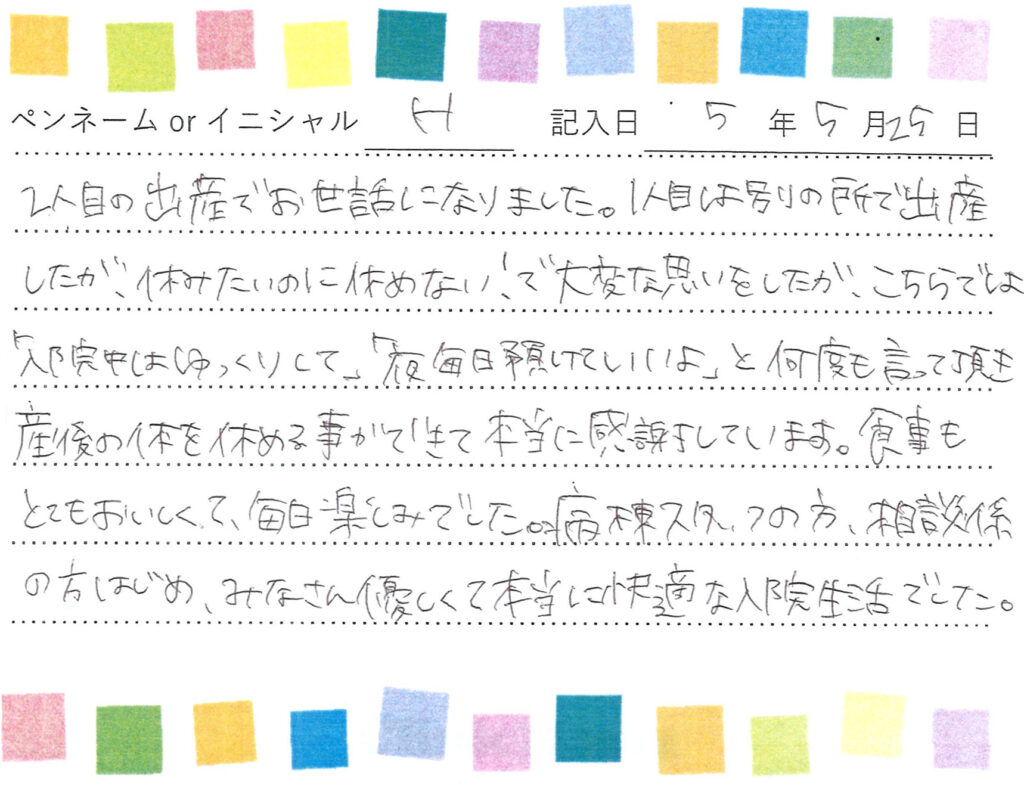 ペンネーム or イニシャル H 記入日 5 年 5 月 25 日
2人目の出産でお世話になりました。1人目は別の所で出産
したが、休みたいのに休めない、で大変な思いをしたが、こちらでは
「入院中はゆっくりして」「夜毎日預けていいよ」と何度も言って頂き
産後の体を休める事ができて本当に感謝しています。食事も
とてもおいしくて、毎日楽しみでした。病棟スタッフの方、相談係
の方はじめ、みなさん優しくて本当に快適な入院生活でした。